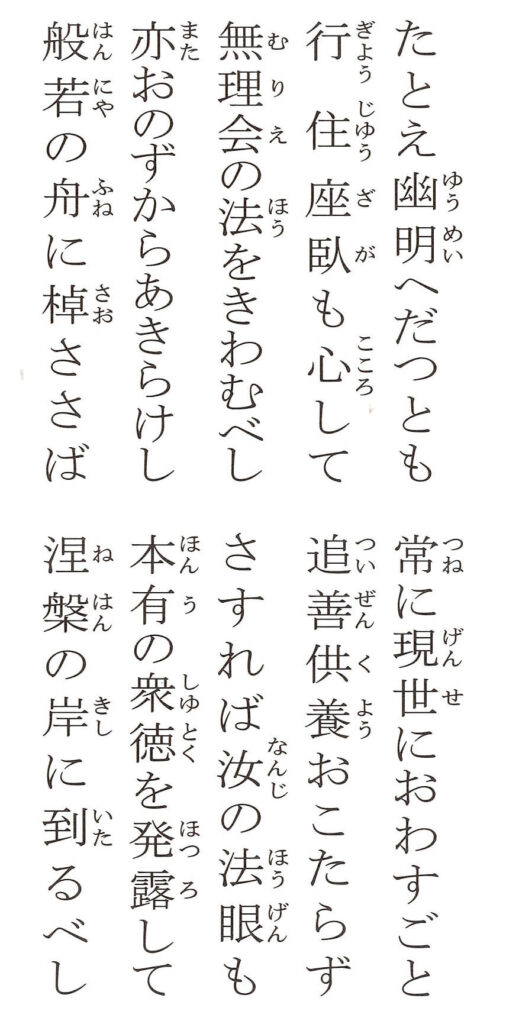 たとえ幽明へだつとも
常に現世におわすごと
行住座臥も心して
追善供養おこたらず
無理会の法をきわむべし
さすれば汝の法眼も
亦おのずからあきらけし
本有の衆徳を発露して
般若の舟に棹ささば
涅槃の岸に到るべし